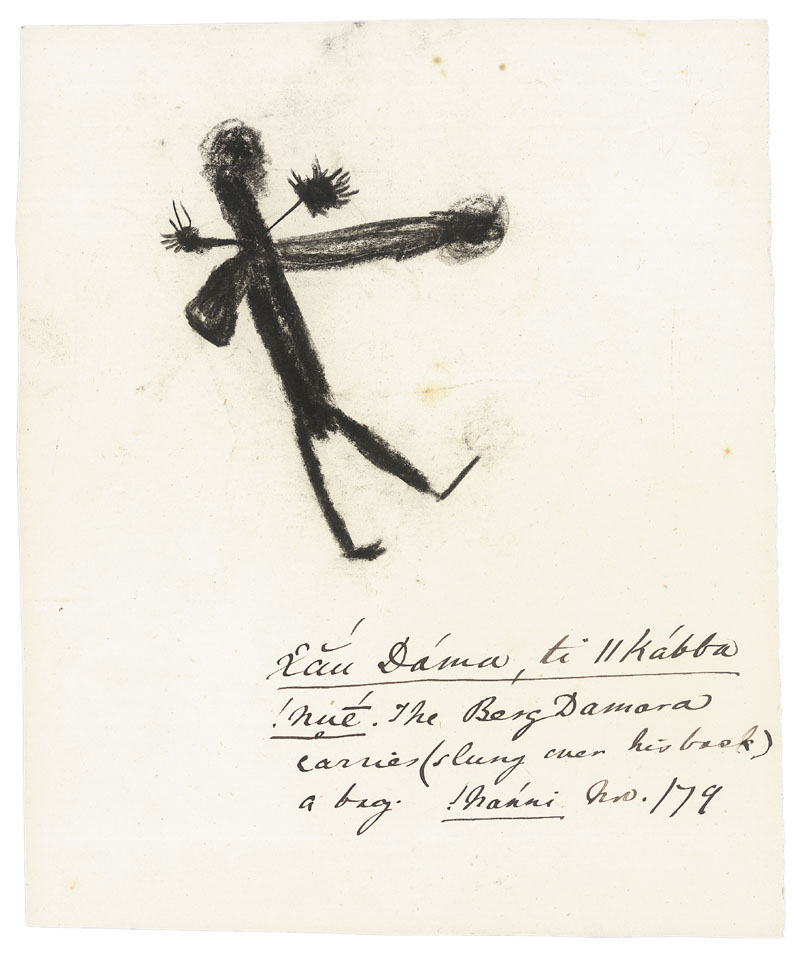 Xău Dáma, ti ǁkábba
!nuḗ. The Berg Damara
carries (slung over his back)
a bag. !nanni No. 179